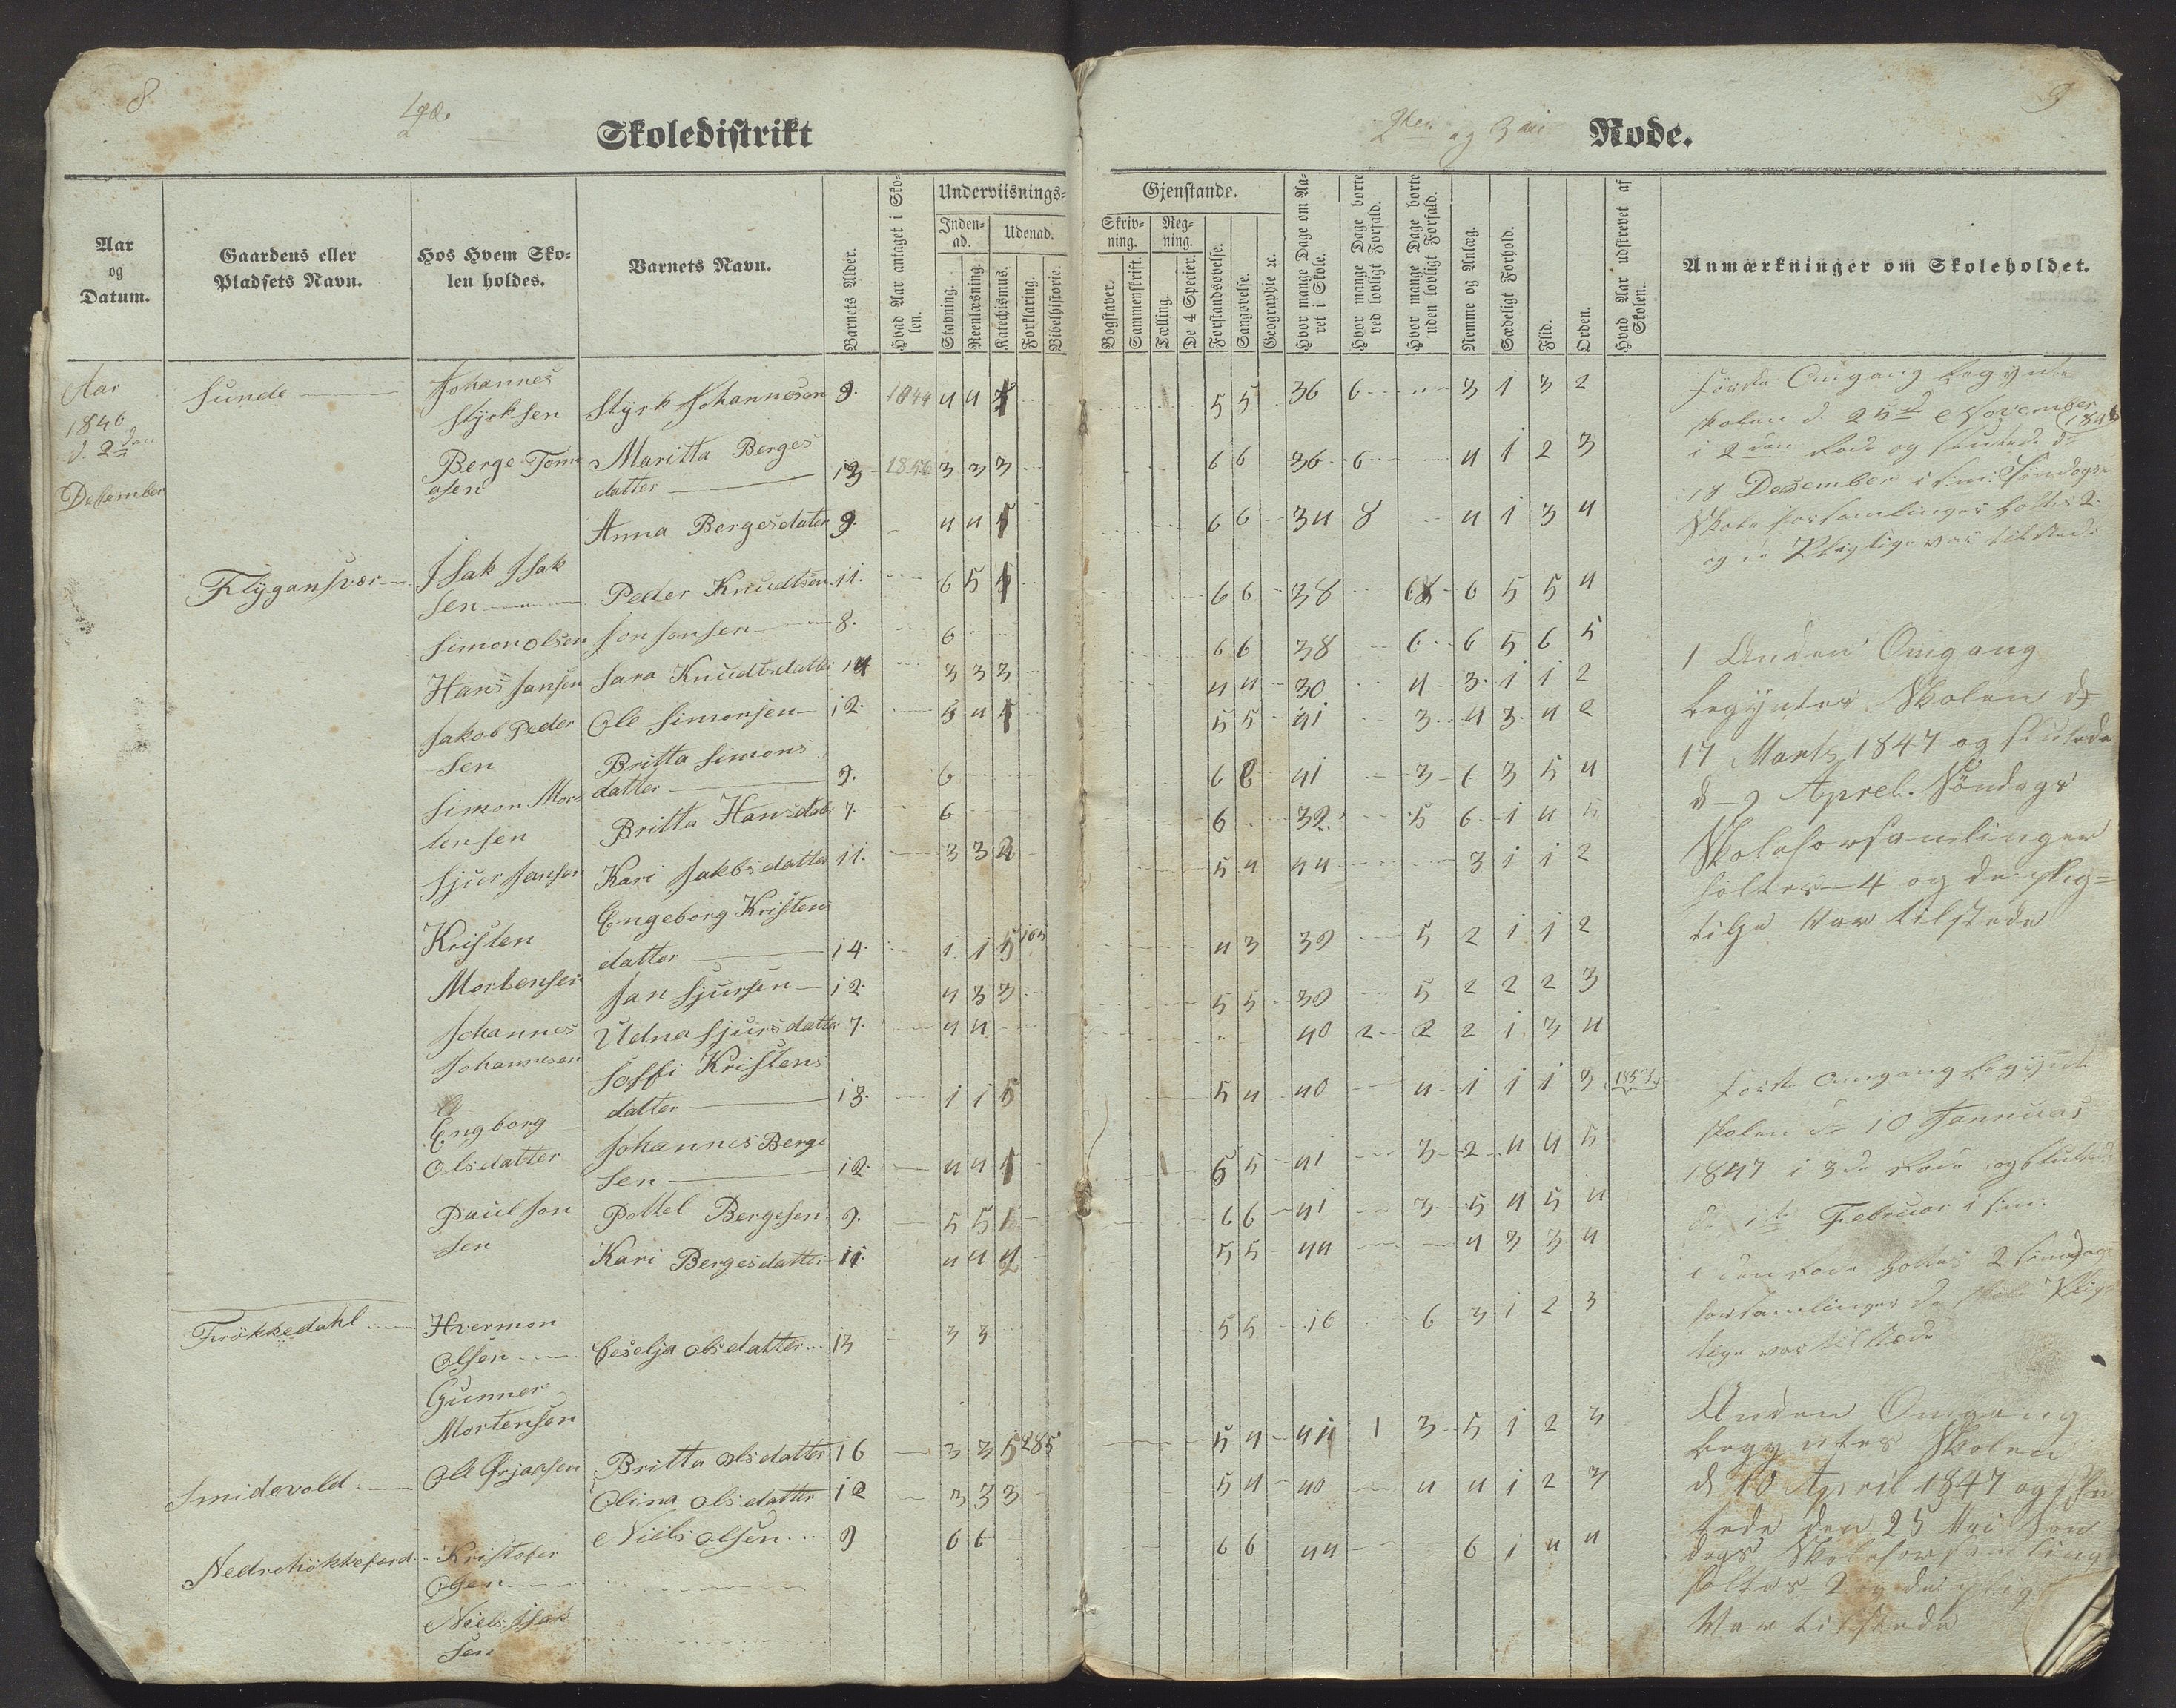 8
Skoledistrikt
Aar
og
Datum.
Gaardens eller
Pladsets Navn.
Hos Hvem Sko-
len holdes.
Barnets Navn.
Barnets Alder.
Hvad Aar antaget i Sko-
len.
Underviisnings-
Inden-
ad.
Udenad.
Stavning.
Reenlæsning.
Katechismus.
Forklaring.
Bibelhistorie.
Aar
1846
d. 2den
Desember
Sunde
Johannes
Styrksen
Styrk Johannesen 9. 1844 4 4
Berge Tom
asen
Maritta Berges
datter 3 3 3
Anna Bergesdater 9. 4 4 5
Flÿgansvær
Isak Isak
sen
Peder Knudtsen 11. 6 5 5
Simon Olsen
Jon Jonsen 8. 6
Hans Jansen
Sara Knudtsdatter 14 3 3 3
Jakob Peder
sen
Ole Simonsen 12. 4
Britta Simons
datter 9. 6
Simon Mor
tensen
Britta Hansdatr 7. 6
Sjur Jansen
Kari Jakbsdatter 11. 3 3
Kristen
Mortensen
Engeborg Kristens
datter 14. 1 1 5
Jan Sjursen 12. 4 3 3
Johannes
Johannesen
Udna Sjursdatter 7. 4 4
Soffi Kristens
datter 13. 1 1 5
Engborg
Olsdatter
Johannes Berge
sen 12. 4 4
Paul Jon
sen
Pottel Bergesen 9. 5 5
Kari Bergesdatter 11 4 4
Frökkedahl
Hvermon
Olsen
Seselja Olsdatter 13 3 3
Gunner
Mortensen
Smidevold
Ole Örjansen
Britta Olsdatter 16 3 3 5 285
Olina Olsdatter 12 3 3 3
Niels Olsen 9 6 6
Kristofer
Olsen
Niels Isak
sen
9
2den og 3die
Rode.
Gjenstande.
Skriv-
ning.
Reg-
ning.
Bogstaver.
Sammenskrift.
Tælling.
De 4 Specier.
Forstandsøvelse.
Sangøvelse.
Geographie ꝛc.
Hvor mange Dage om Aa-
ret i Skole.
Hvor mange Dage borte
ved lovligt Forfald.
Hvor mange Dage borte
uden lovligt Forfald.
Nemme og Anlæg.
Sædeligt Forhold.
Flid.
Orden.
Hvad Aar udskrevet af
Skolen.
Anmærkninger om Skoleholdet.
5 5 36 6 3 1 3 2
6 6 36 6 4 1 2 3
6 6 34 8 4 1 3 4
6 6 38 6 5 5 4
6 6 38 6 6 5 6 5
4 4 30 4 3 1 1 2
5 5 41 3 4 3 4 2
6 6 41 3 6 3 5 4
6 39 5 6 1 4 5
5 4 44 3 1 1 2
4 3 39 5 2 1 1 2
5 5 39 5 2 2 2 3
40 2 2 2 1 3 4
5 4 40 4 1 1 1 3 1853
6 5 41 3 2 4 4 5
6 6 41 3 5 4 5 4
5 5 44 4 3 3 4
5 5 16 6 3 1 2 3
5 4 44 1 3 5 1 2 3
5 4 40 4 4 1 2 3
6 6 44 6 1 4 4
första Omgang begynte
skolen d. 25d November
1846
i 2den Rode og sluttede d
18 Desember i
Skole forsamlinger holtes 2
og de Pligtige var tilstede
1 Anden Omgang
begyntes Skolen d
17 Marts 1847 og sluttede
d 9 Aprel. Söndags
Skoleforsamlinger
holtes 4 og de plig=
tige Var tilstede
forste Omgang begynte
skolen d 10 Januar
1847 i 3de Rode og sluttede
Februar
holtes 2 söndags
forsamlinger de Plig
tige var tilstede
Anden Omgang
begyntes Skolen
d 10 April 1847 og slu
tede den 25 Mai Sön
dags Skoleforsamling
holtes 2 og de plig
Var tilstede